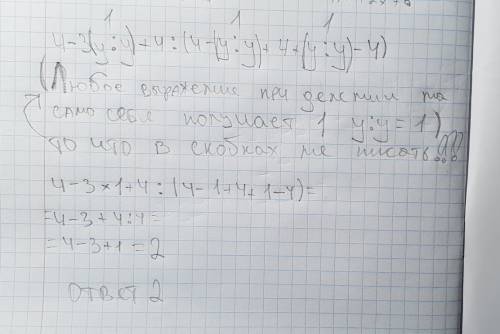 1 1 1
4-3(y:y)+4:(4-(y:y)+4+(y:y)-4)
(Любое выражение при делении на
само себя получает 1 y:y=1)
то что в скобках не писать!!!
4-3×1+4:(4-1+4+1-4)=
=4-3+4:4=
=4-3+1=2
Ответ 2